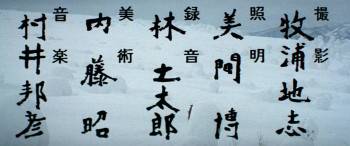 撮影
牧浦地志
照明
美間博
録音
林土太郎
美術
内藤昭
音楽
村井邦彦